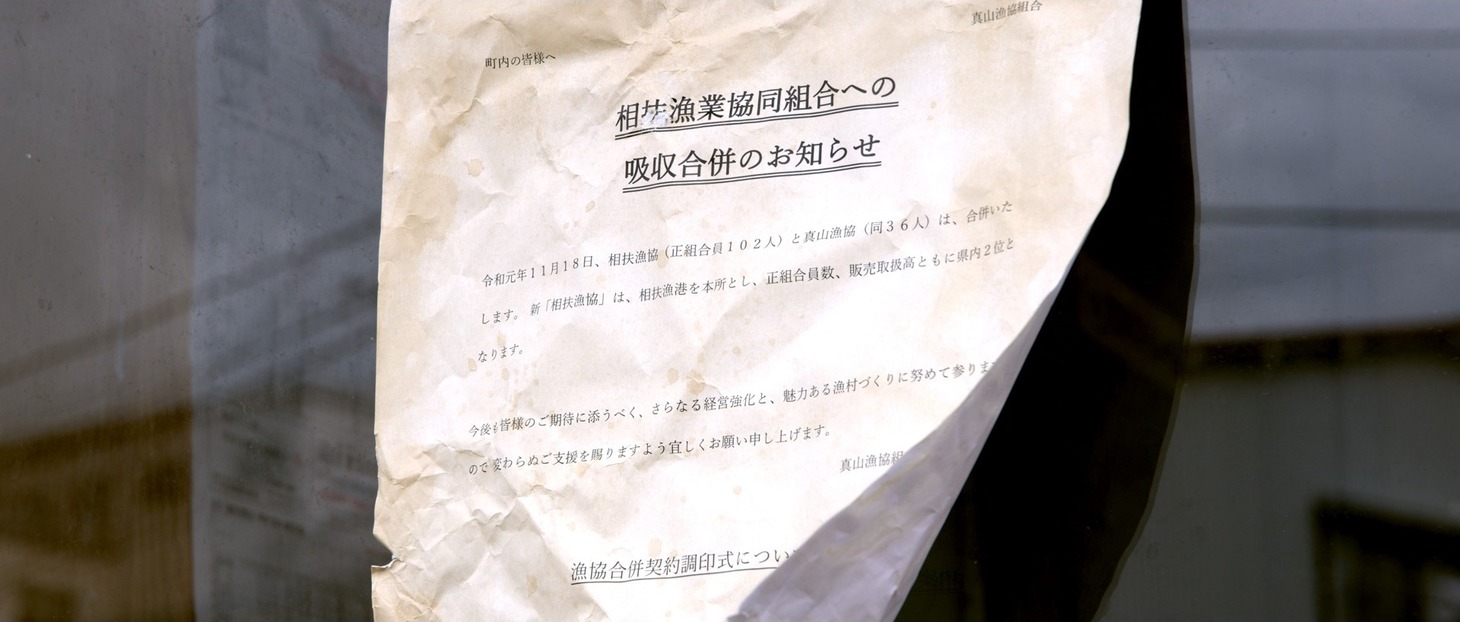 真山漁協組合
町内の皆様へ
相扶漁業協同組合への
吸収合併のお知らせ
令和元年11月18日、相扶漁協（正組合員102人）と真山漁協（同36人）は、合併いた
します。 新「相扶漁協」は、相扶漁港を本所とし、正組合員数、販売取扱高ともに県内2位と
なります。
今後も皆様のご期待に添うべく、さらなる経営強化と、魅力ある漁村づくりに努めて参りま
ので変わらぬご支援を賜りますよう宜しくお願い申し上げます。
真山漁協組
漁協合併契約調印式につい